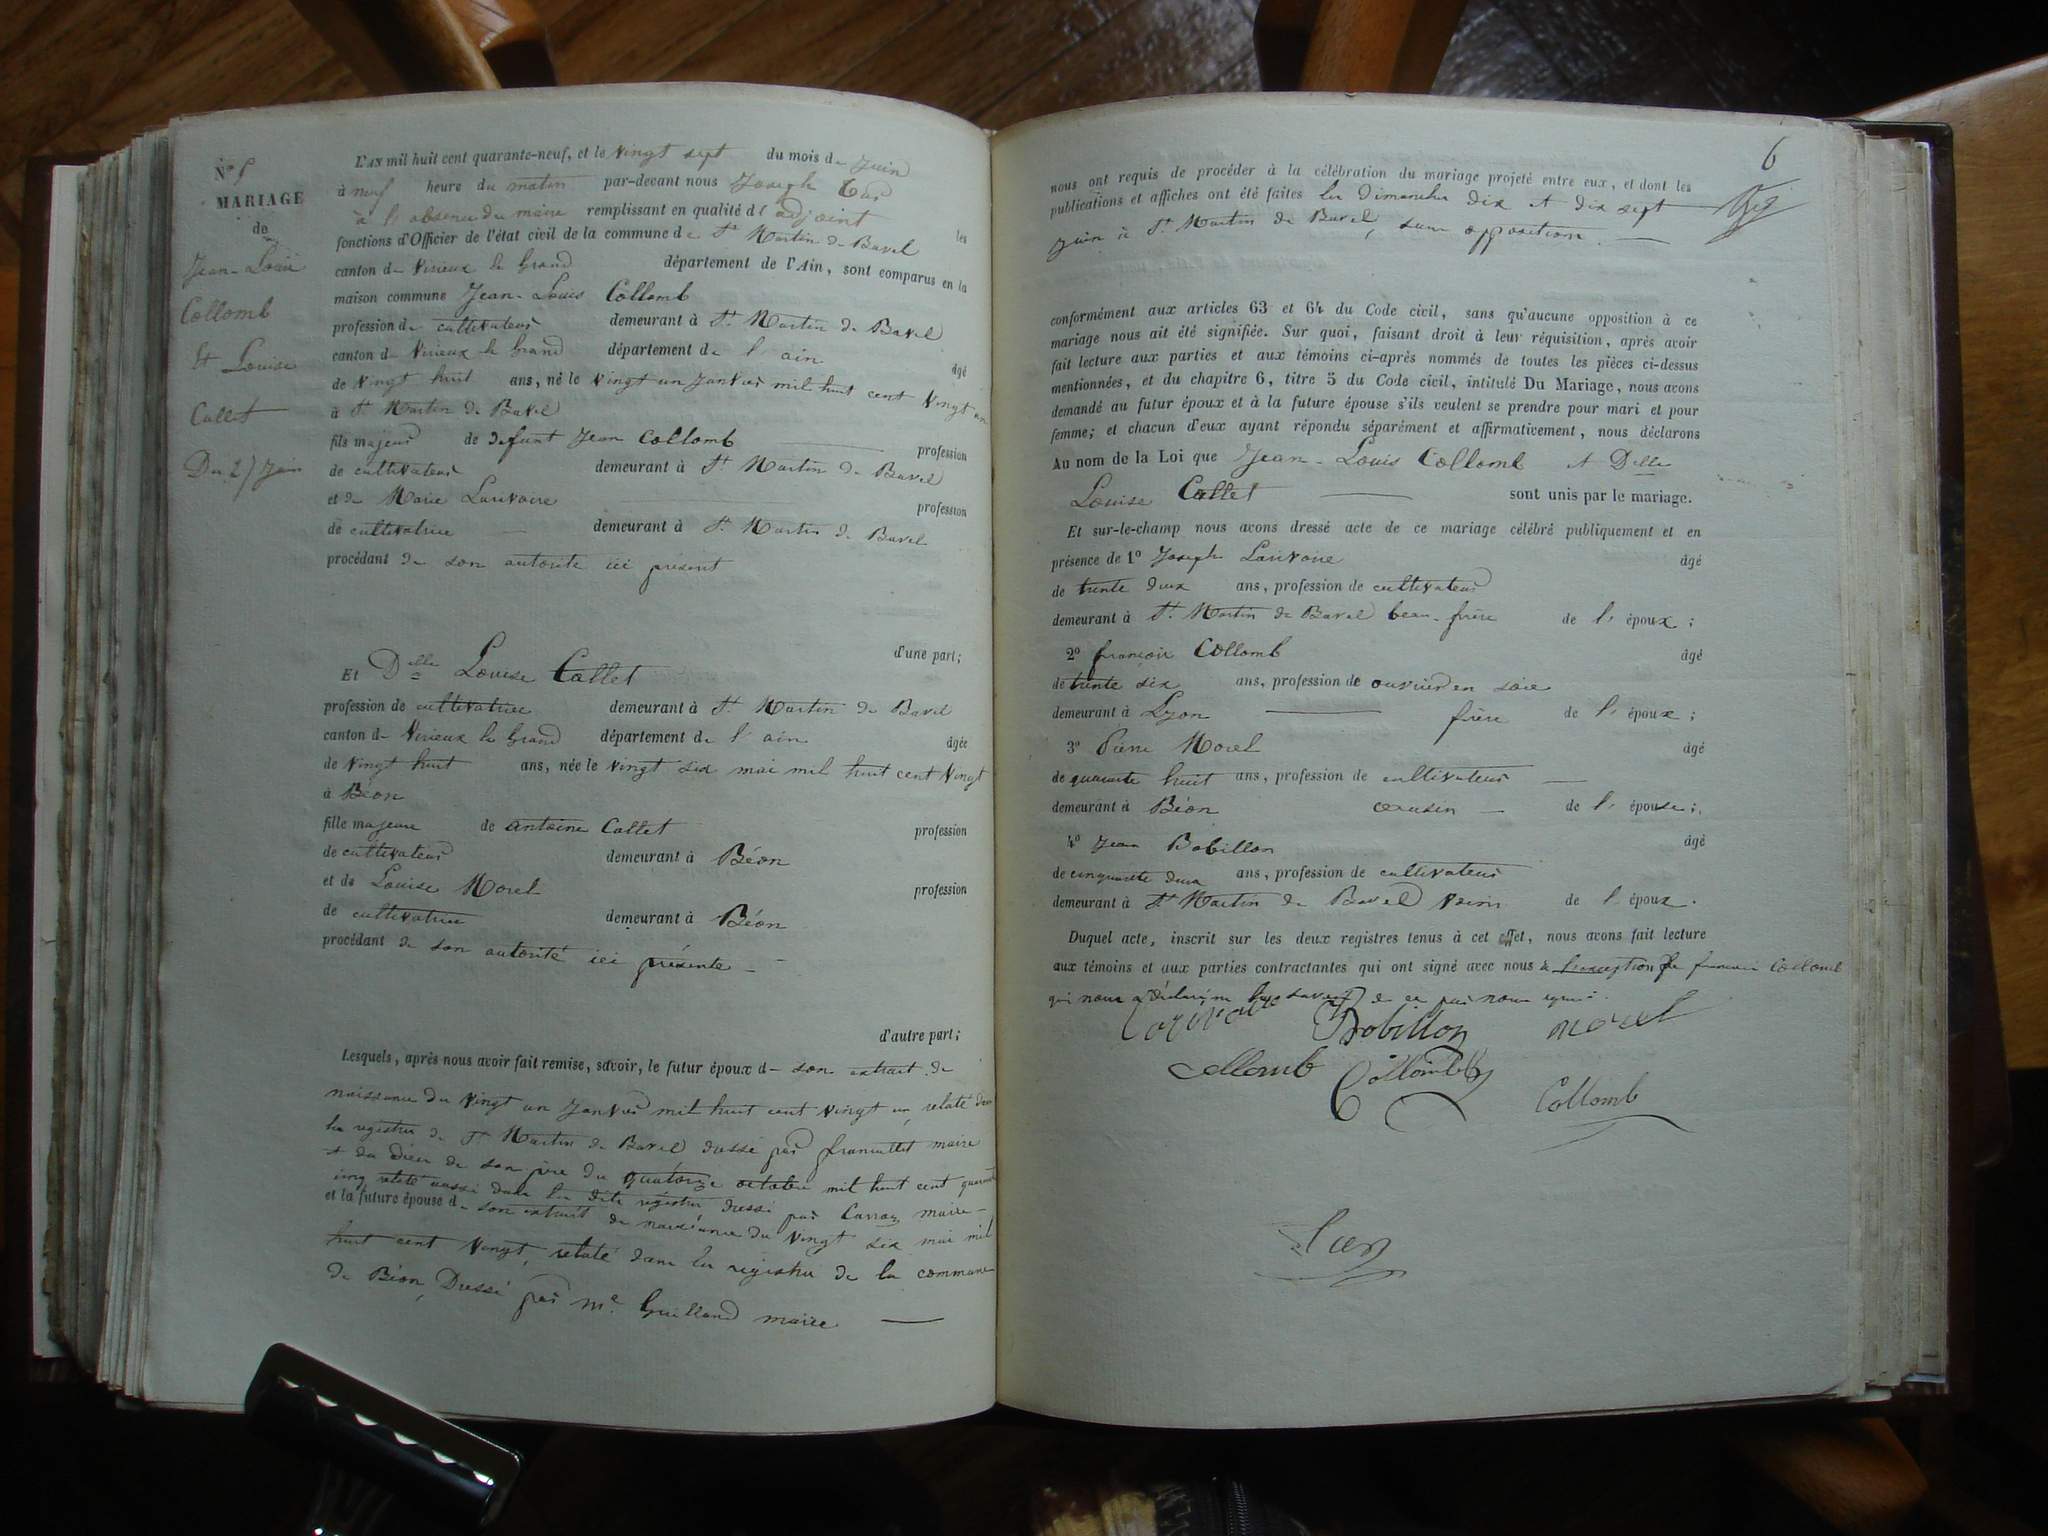 N° 5
MARIAGE
de
Jean-Louis
Collomb
Et Louise
Callet
Du 27 Juin
L'AN mil huit cent quarante-neuf, et le vingt sept du mois de juin
à neuf heure du matin par-devant nous Joseph
à l'absence du maire remplissant en qualité d'adjoint les
fonctions d'Officier de l'état civil de la commune de St Martin de Bavel
canton de Virieux le Grand département de l'Ain, sont comparus en la
maison commune Jean-Louis Collomb
profession de cultivateur demeurant à St Martin de Bavel
canton de Virieux le Grand département de l'ain âgé
de vingt huit ans, né le vingt un janvier mil huit cent vingt un
à St Martin de Bavel
fils majeur de defunt Jean Collomb profession
de cultivateur demeurant à St Martin de Bavel
et de Marie Larivoire profession
de cultivatrice demeurant à St Martin de Bavel
procédant de son autorité ici présent
d'une part;
Et Delle Louise Callet
profession de cultivatrice demeurant à St Martin de Bavel
canton de Virieux le Grand département de l'ain âgée
de vingt huit ans, née le vingt six mai mil huit cent vingt
à Béon
fille majeure de antoine Callet profession
de cultivateur demeurant à Béon
et de Louise Morel profession
de cultivatrice demeurant à Béon
procédant de son autorité ici présente
d'autre part;
Lesquels, après nous avoir fait remise, savoir, le futur époux d son extrait de
naissance du vingt un janvier mil huit cent vingt un, relaté dans
les registres de St Martin de Bavel dressé par francillet maire
et du décès de son père du quatorze octobre mil huit cent quarante
cinq relaté aussi dans les dits registres dressé par Carraz maire
et la future épouse d son extrait de naissance du vingt six mai mil
huit cent vingt, relaté dans les registres de la commune
de Béon, Dressé par me Guilland maire
6
nous ont requis de procéder à la célébration du mariage projeté entre eux, et dont les
publications et affiches ont été faites les dimanches dix et dix sept
juin à St Martin de Bavel, sans opposition.
conformément aux articles 63 et 64 du Code civil, sans qu'aucune opposition à ce
mariage nous ait été signifiée. Sur quoi, faisant droit à leur réquisition, après avoir
fait lecture aux parties et aux témoins ci-après nommés de toutes les pièces ci-dessus
mentionnées, et du chapitre 6, titre 5 du Code civil, intitulé Du Mariage, nous avons
demandé au futur époux et à la future épouse s'ils veulent se prendre pour mari et pour
femme; et chacun d'eux ayant répondu séparément et affirmativement, nous déclarons
Au nom de la Loi que Jean-Louis Collomb et Delle
Louise Callet sont unis par le mariage.
Et sur-le-champ nous avons dressé acte de ce mariage célébré publiquement et en
présence de 1° Joseph Larivoire âgé
de trente deux ans, profession de cultivateur
demeurant à St Martin de Bavel beau-frère de l'époux;
2° françois Collomb âgé
de trente six ans, profession de ouvrier en soie
demeurant à Lyon frère de l'époux;
3° Pierre Morel âgé
de quarante huit ans, profession de cultivateur
demeurant à Béon cousin de l'épouse;
4° Jean Bobillon âgé
de cinquante deux ans, profession de cultivateur
demeurant à St Martin de Bavel voisin de l'époux.
Duquel acte, inscrit sur les deux registres tenus à cet effet, nous avons fait lecture
aux témoins et aux parties contractantes qui ont signé avec nous à l'exception de francois Collomb
qui nous a déclaré ne le savoir de ce par nous
Larivoire Bobillon morel
Collomb Collomb Collomb